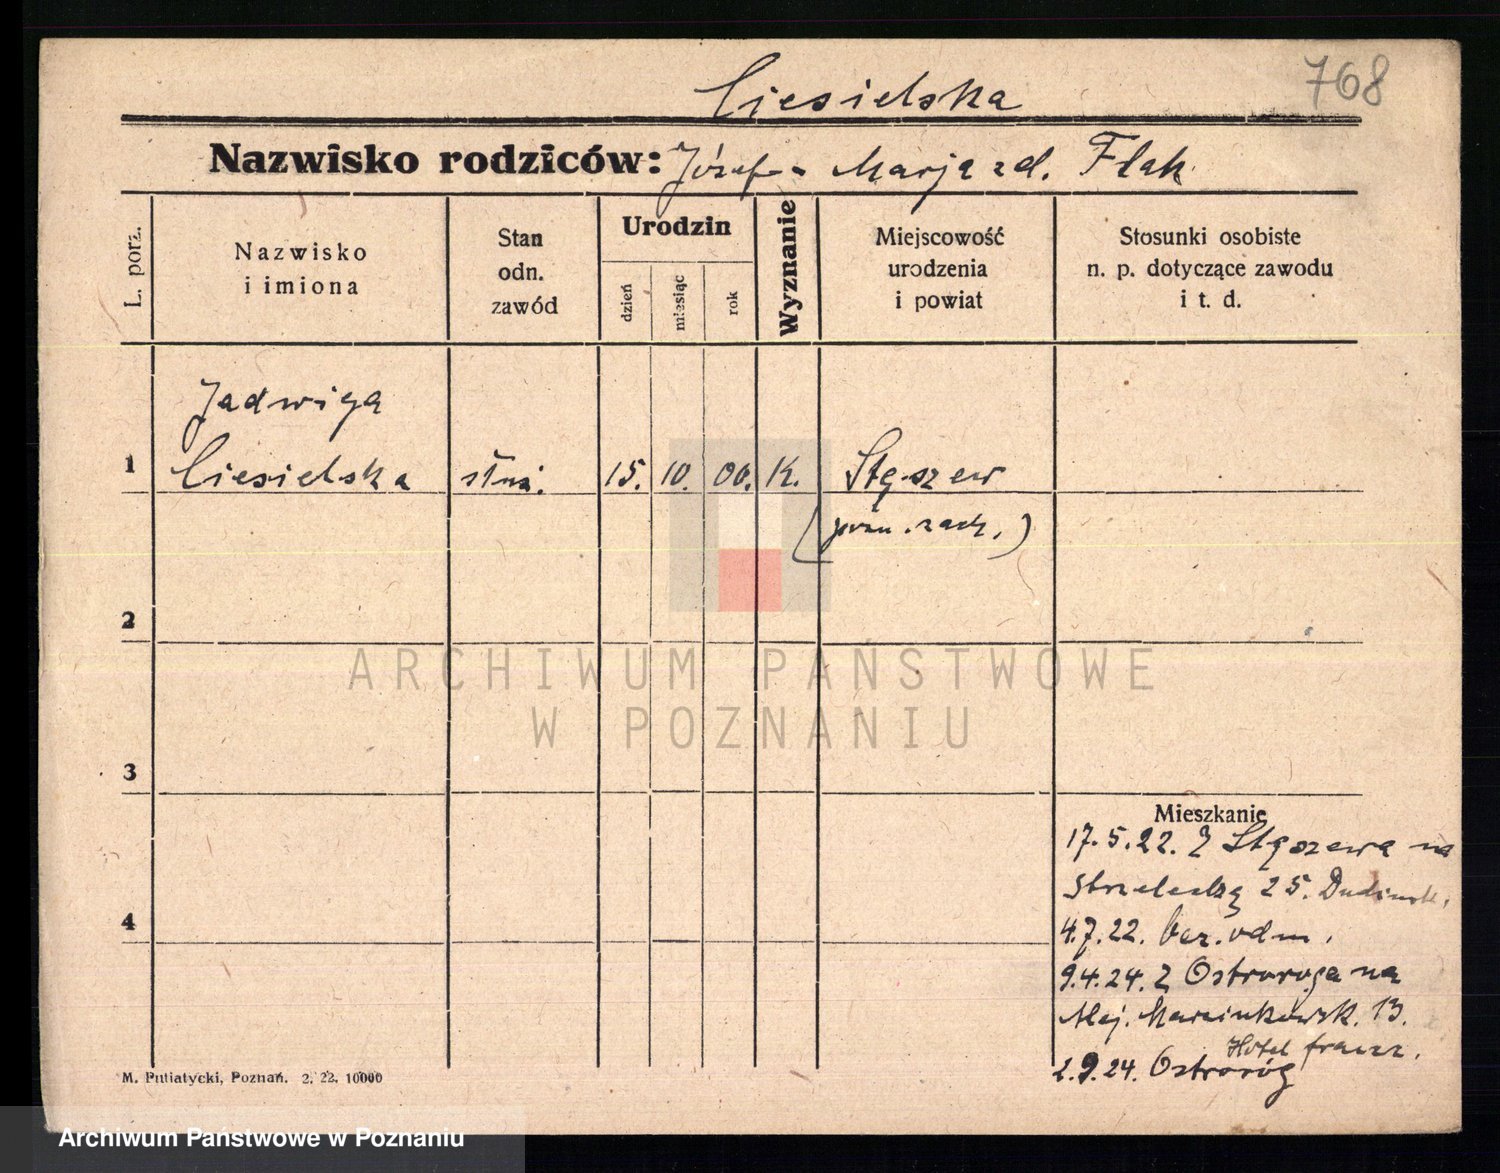 768
Ciesielska
Nazwisko rodziców: Józef - Marja zd. Flak
L. porz.
Nazwisko
i imiona
Stan
odn.
zawód
Urodzin
dzień
miesiąc
rok
Wyznanie
Miejscowość
urodzenia
i powiat
Stosunki osobiste
n. p. dotyczące zawodu
i t. d.
Jadwiga
1 Ciesielska służ. 15. 10. 00. K. Stęszew
(pozn. zach.)
2
3
4
Mieszkanie
17.5.22. Z Stęszewa na
Strzelecką 25.
4.7.22. bez. odm.
9.4.24. Z Ostroroga na
Alej. Marcinkowsk. 13.
Hotel francz.
2.9.24. Ostroróg
M. Putiatycki, Poznań. 2. 22. 10000
ARCHIWUM PAŃSTWOWE
W POZNANIU
Archiwum Państwowe w Poznaniu